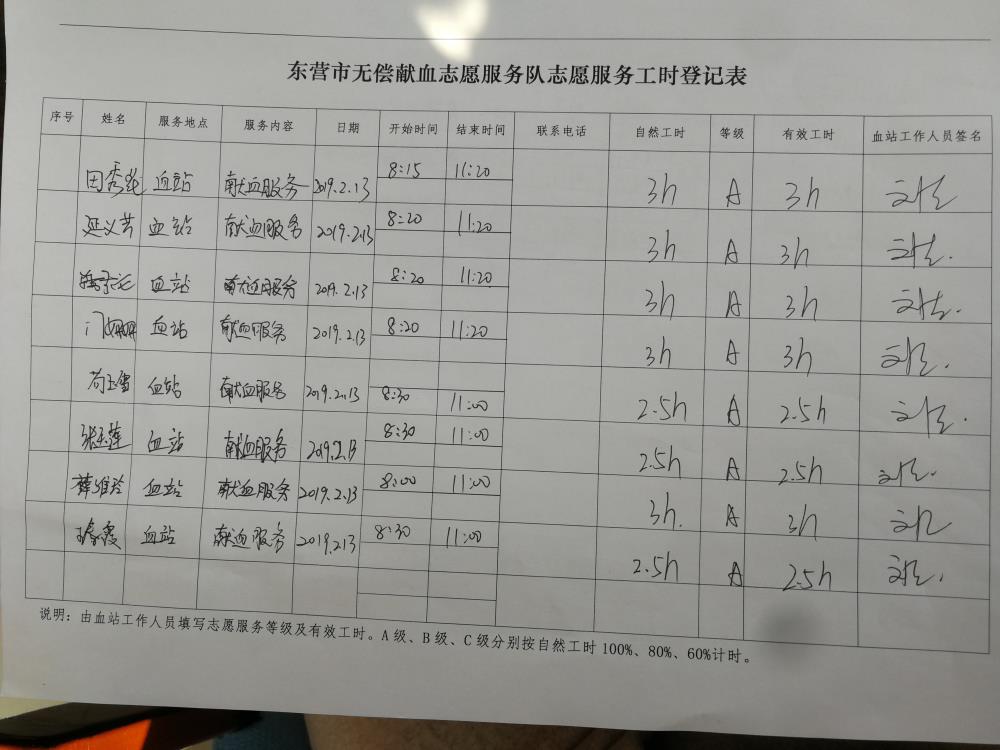 东营市无偿献血志愿服务队志愿服务工时登记表
序号 姓名 服务地点 服务内容 日期 开始时间 结束时间 联系电话 自然工时 等级 有效工时 血站工作人员签名
田秀 血站 献血服务 2019.2.13 8:15 11:20 3h A 3h
延义芳 血站 献血服务 2019.2.13 8:20 11:20 3h A 3h
血站 献血服务 2019.2.13 8:20 11:20 3h A 3h
门姗姗 血站 献血服务 2019.2.13 8:20 11:20 3h A 3h
血站 献血服务 2019.2.13 8:30 11:00 2.5h A 2.5h
张玉莲 血站 献血服务 2019.2.13 8:30 11:00 2.5h A 2.5h
薛维玲 血站 献血服务 2019.2.13 8:00 11:00 3h. A 3h
血站 献血服务 2019.213 8:30 11:00 2.5h A 2.5h
说明：由血站工作人员填写志愿服务等级及有效工时。A级、B级、C级分别按自然工时100%、80%、60%计时。